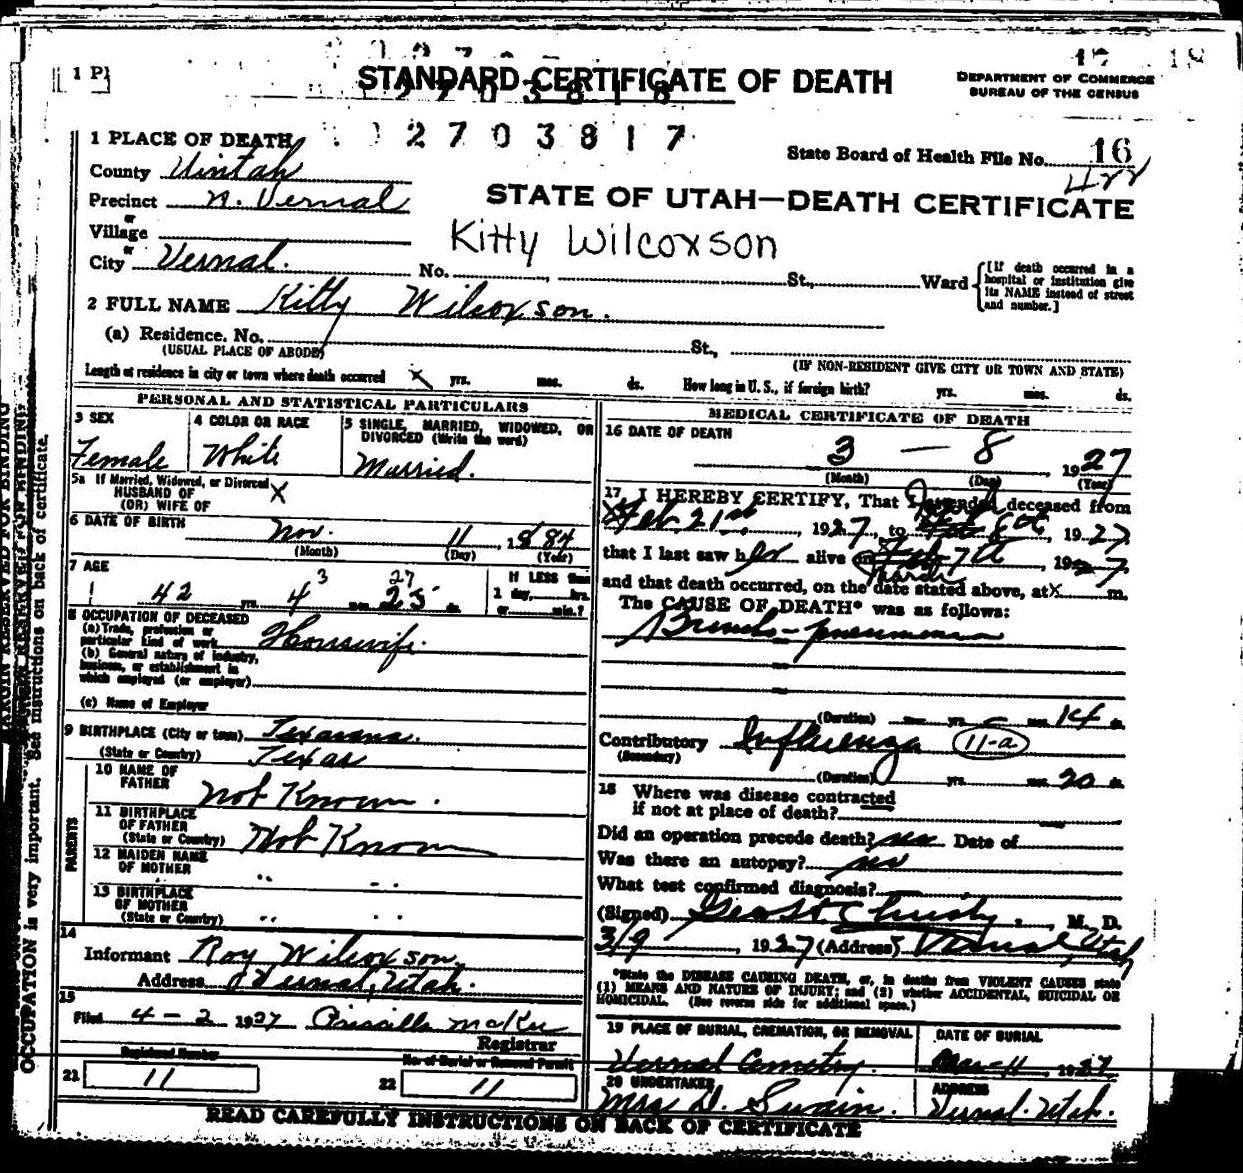 1 P
STANDARD CERTIFICATE OF DEATH
DEPARTMENT OF COMMERCE
BUREAU OF THE CENSUS
2703818
2703817
1 PLACE OF DEATH
State Board of Health File No. 16
County Uintah
Precinct N. Vernal
STATE OF UTAH—DEATH CERTIFICATE
or
Village
Kitty Wilcoxson
or
City Vernal. No. St., Ward
[If death occurred in a hospital or institution give its NAME instead of street and number.]
2 FULL NAME Kitty Wilcoxson.
(a) Residence. No. St.,
(USUAL PLACE OF ABODE) (IF NON-RESIDENT GIVE CITY OR TOWN AND STATE)
Length of residence in city or town where death occurred x yrs. mos. ds. How long in U. S., if foreign birth? yrs. mos. ds.
PERSONAL AND STATISTICAL PARTICULARS
3 SEX Female
4 COLOR OR RACE White
5 SINGLE, MARRIED, WIDOWED, OR DIVORCED (Write the word) Married.
5a If Married, Widowed, or Divorced
HUSBAND OF
(OR) WIFE OF x
6 DATE OF BIRTH Nov. 11, 1884
(Month) (Day) (Year)
7 AGE 42 yrs. 4 3 mos. 27 25 ds.
If LESS than 1 day, hrs. or min.?
8 OCCUPATION OF DECEASED
(a) Trade, profession or particular kind of work Housewife
(b) General nature of industry, business, or establishment in which employed (or employer)
(c) Name of Employer
9 BIRTHPLACE (City or town) Texarana.
(State or Country) Texas
PARENTS
10 NAME OF FATHER Not Known.
11 BIRTHPLACE OF FATHER (State or Country) Not Known
12 MAIDEN NAME OF MOTHER " "
13 BIRTHPLACE OF MOTHER (State or Country) " "
14
Informant Roy Wilcoxson
Address Vernal, Utah.
15
Filed 4-2 1927 Priscilla McKee
Registrar
Registered Number
21 11
No. of Burial or Removal Permit
22 11
MEDICAL CERTIFICATE OF DEATH
16 DATE OF DEATH
3 — 8, 1927
(Month) (Day) (Year)
17 I HEREBY CERTIFY, That I attended deceased from
Feb 21st, 1927, to 8th, 1927
that I last saw her alive on Feb 7th March, 1927
and that death occurred, on the date stated above, at x m.
The CAUSE OF DEATH* was as follows:
Broncho-pneumonia
(Duration) yrs. mos. 14 ds.
Contributory Influenza 11-a
(Secondary)
(Duration) yrs. mos. 20 ds.
18 Where was disease contracted
if not at place of death?
Did an operation precede death? no Date of
Was there an autopsy? no
What test confirmed diagnosis?
(Signed) Christy, M. D.
3/9, 1927 (Address) Vernal, Utah
*State the DISEASE CAUSING DEATH, or, in deaths from VIOLENT CAUSES state
(1) MEANS AND NATURE OF INJURY; and (2) whether ACCIDENTAL, SUICIDAL OR
HOMICIDAL. (See reverse side for additional space.)
19 PLACE OF BURIAL, CREMATION, OR REMOVAL Vernal Cemetry.
DATE OF BURIAL Mar-11, 1927
20 UNDERTAKER Mrs D. Swain.
ADDRESS Vernal. Utah.
READ CAREFULLY INSTRUCTIONS ON BACK OF CERTIFICATE
MARGIN RESERVED FOR BINDING
OCCUPATION is very important. See instructions on back of certificate.